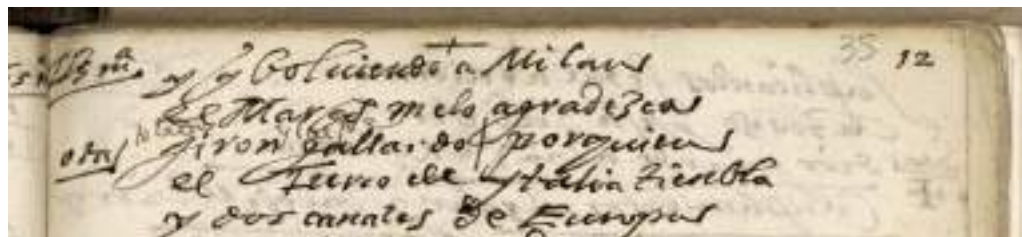 35 12
y bolviendo a Milan
el Marqs melo agradezca
otas Jiron gallardo porquien
el Turco de ytalia tiembla
y dos canales de Europa